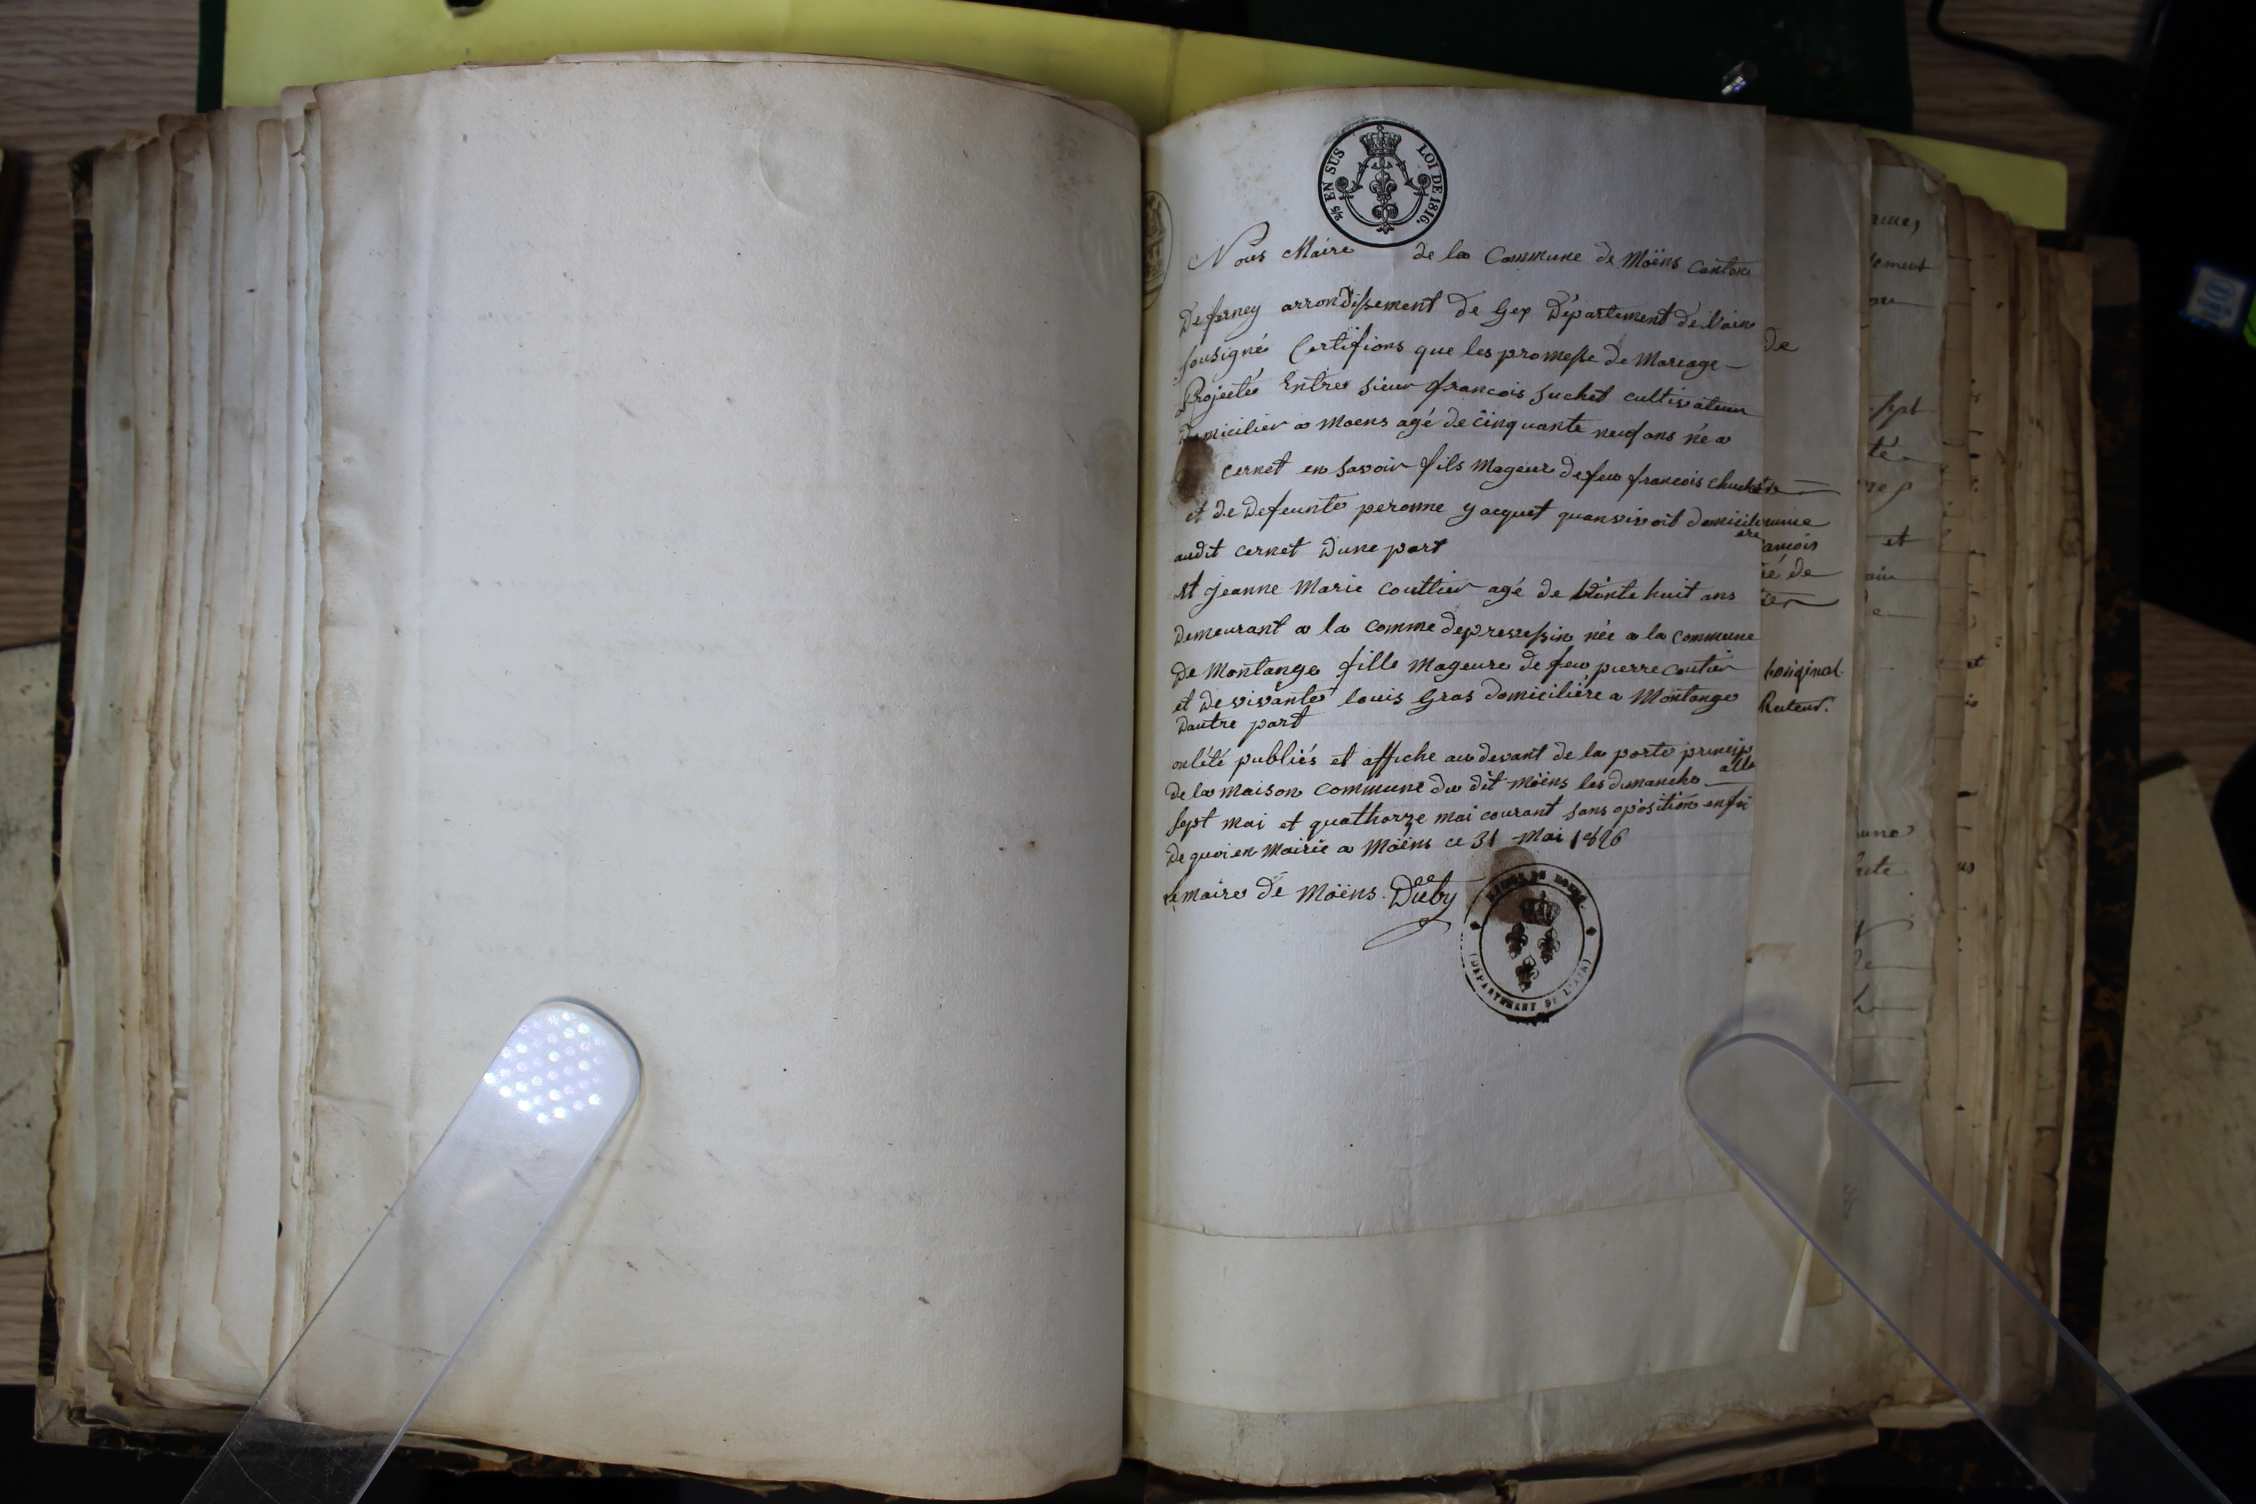 2/5 EN SUS LOI DE 1816.
Nous Maire de la Commune de Moëns Canton
De ferney arrondissement de Gex Département de l'ain
sousigné Certifions que les promesse de Mariage
Projetée Entre sieur françois suchet cultivateur
Domicilier a moens agé de cinquante neuf ans né a
cernet en Savoir fils Mageur de feu francois
et de Defeunte peronne yacquet quan vivoit domicili
ere
audit cernet D'une part
et jeanne Marie Couttier agé de huit ans
Demeurant a la comme de prevessin née a la commune
De Montange fille Mageure de feu pierre coutier
et de vivante louis Gras domicilière a Montange
D'autre part
on'été publiés et affiche au devant de la porte princip
alle
de la maison commune du dit moëns les dimanche
sept mai et quathorze mai courant sans oposition en foi
De quoi en Mairie a Moëns ce 31 Mai 1826
le maire de Moëns
DÉPARTEMENT DE L'AIN
de
ancois
né de
l'original
et